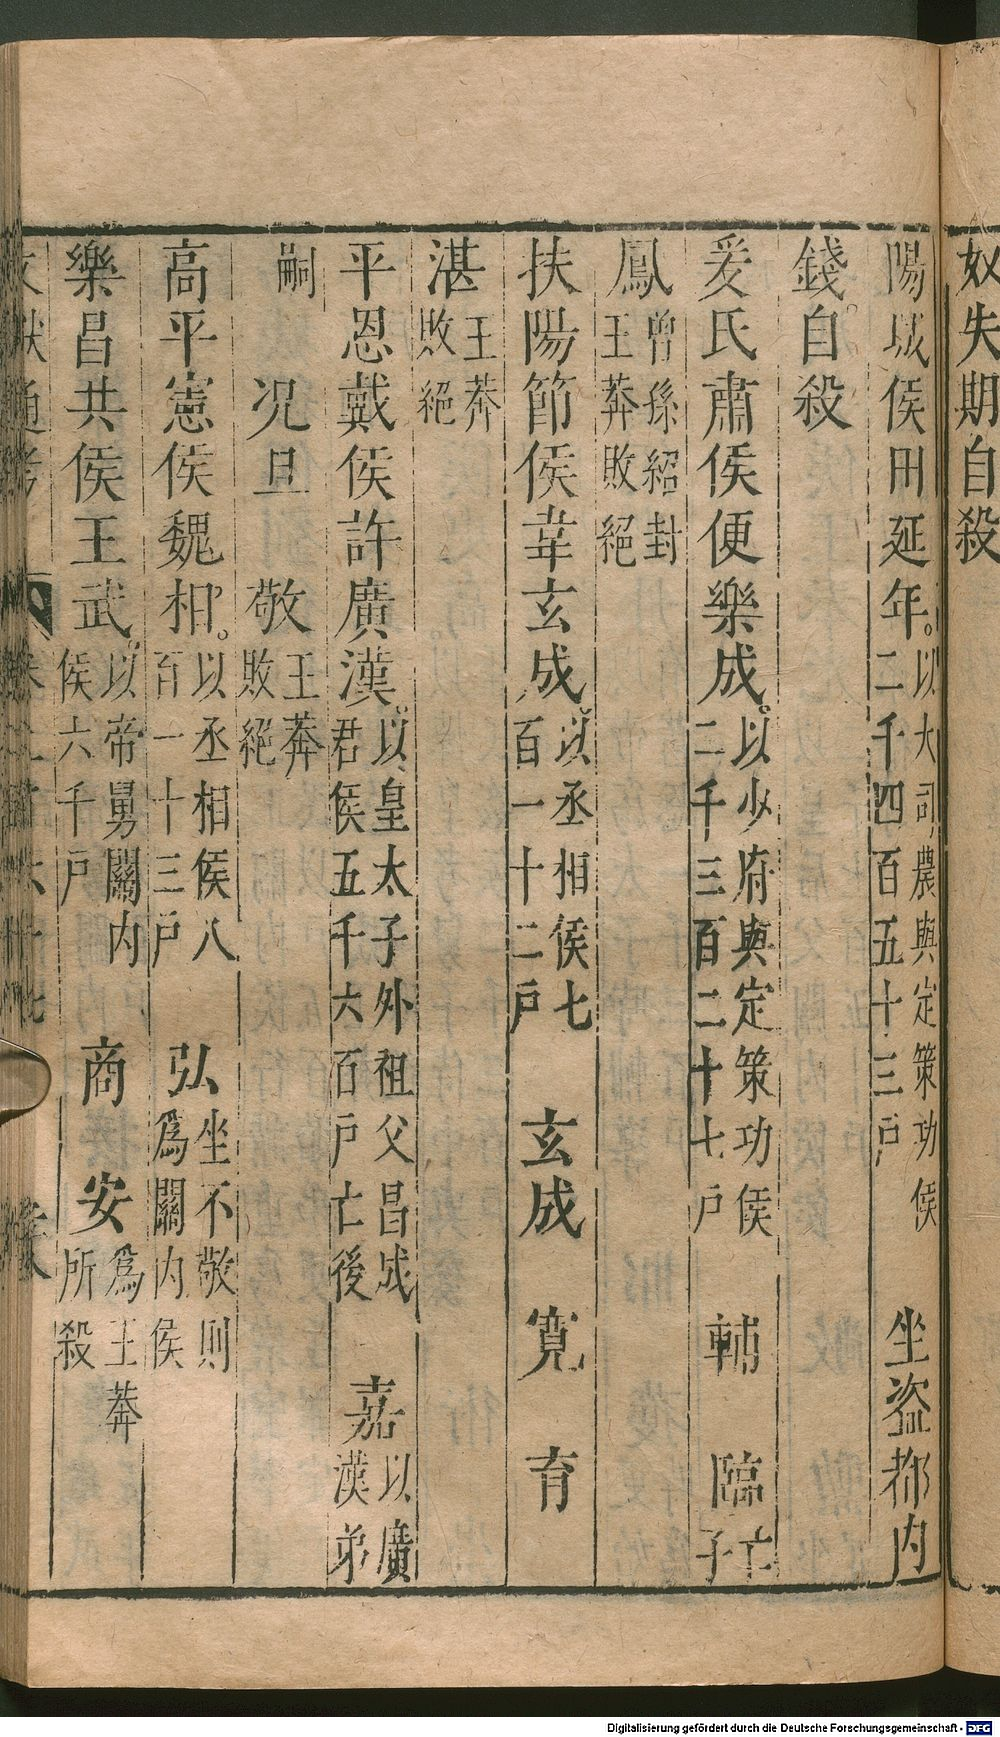 奴失期自殺
陽城侯田延年。以大司農與定策功侯二千四百五十三戶 坐盜都內
錢。自殺
爰氏肅侯便樂成。以少府與定策功侯二千三百二十七戶 輔 臨亡子
鳳曾孫紹封王莽敗絕
扶陽節侯韋玄成。以丞相侯七百一十二戶 玄成 寬 育
湛王莽敗絕
平恩戴侯許廣漢。以皇太子外祖父昌成君侯五千六百戶亡後 嘉以廣漢弟
嗣 況 旦 敬王莽敗絕
高平憲侯魏相。以丞相侯八百一十三戶 弘坐不敬則為關內侯
樂昌共侯王武。以帝舅關內侯六千戶 商 安為王莽所殺
文獻通考
Digitalisierung gefördert durch die Deutsche Forschungsgemeinschaft - DFG